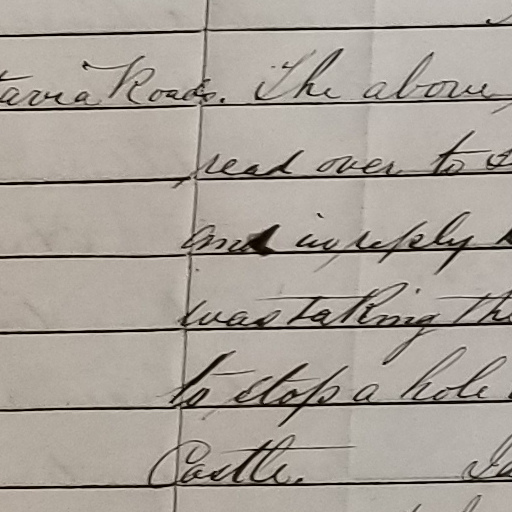 tavia Roads. The above
read over to
and in reply
was taking the
to stop a hole
Castle.